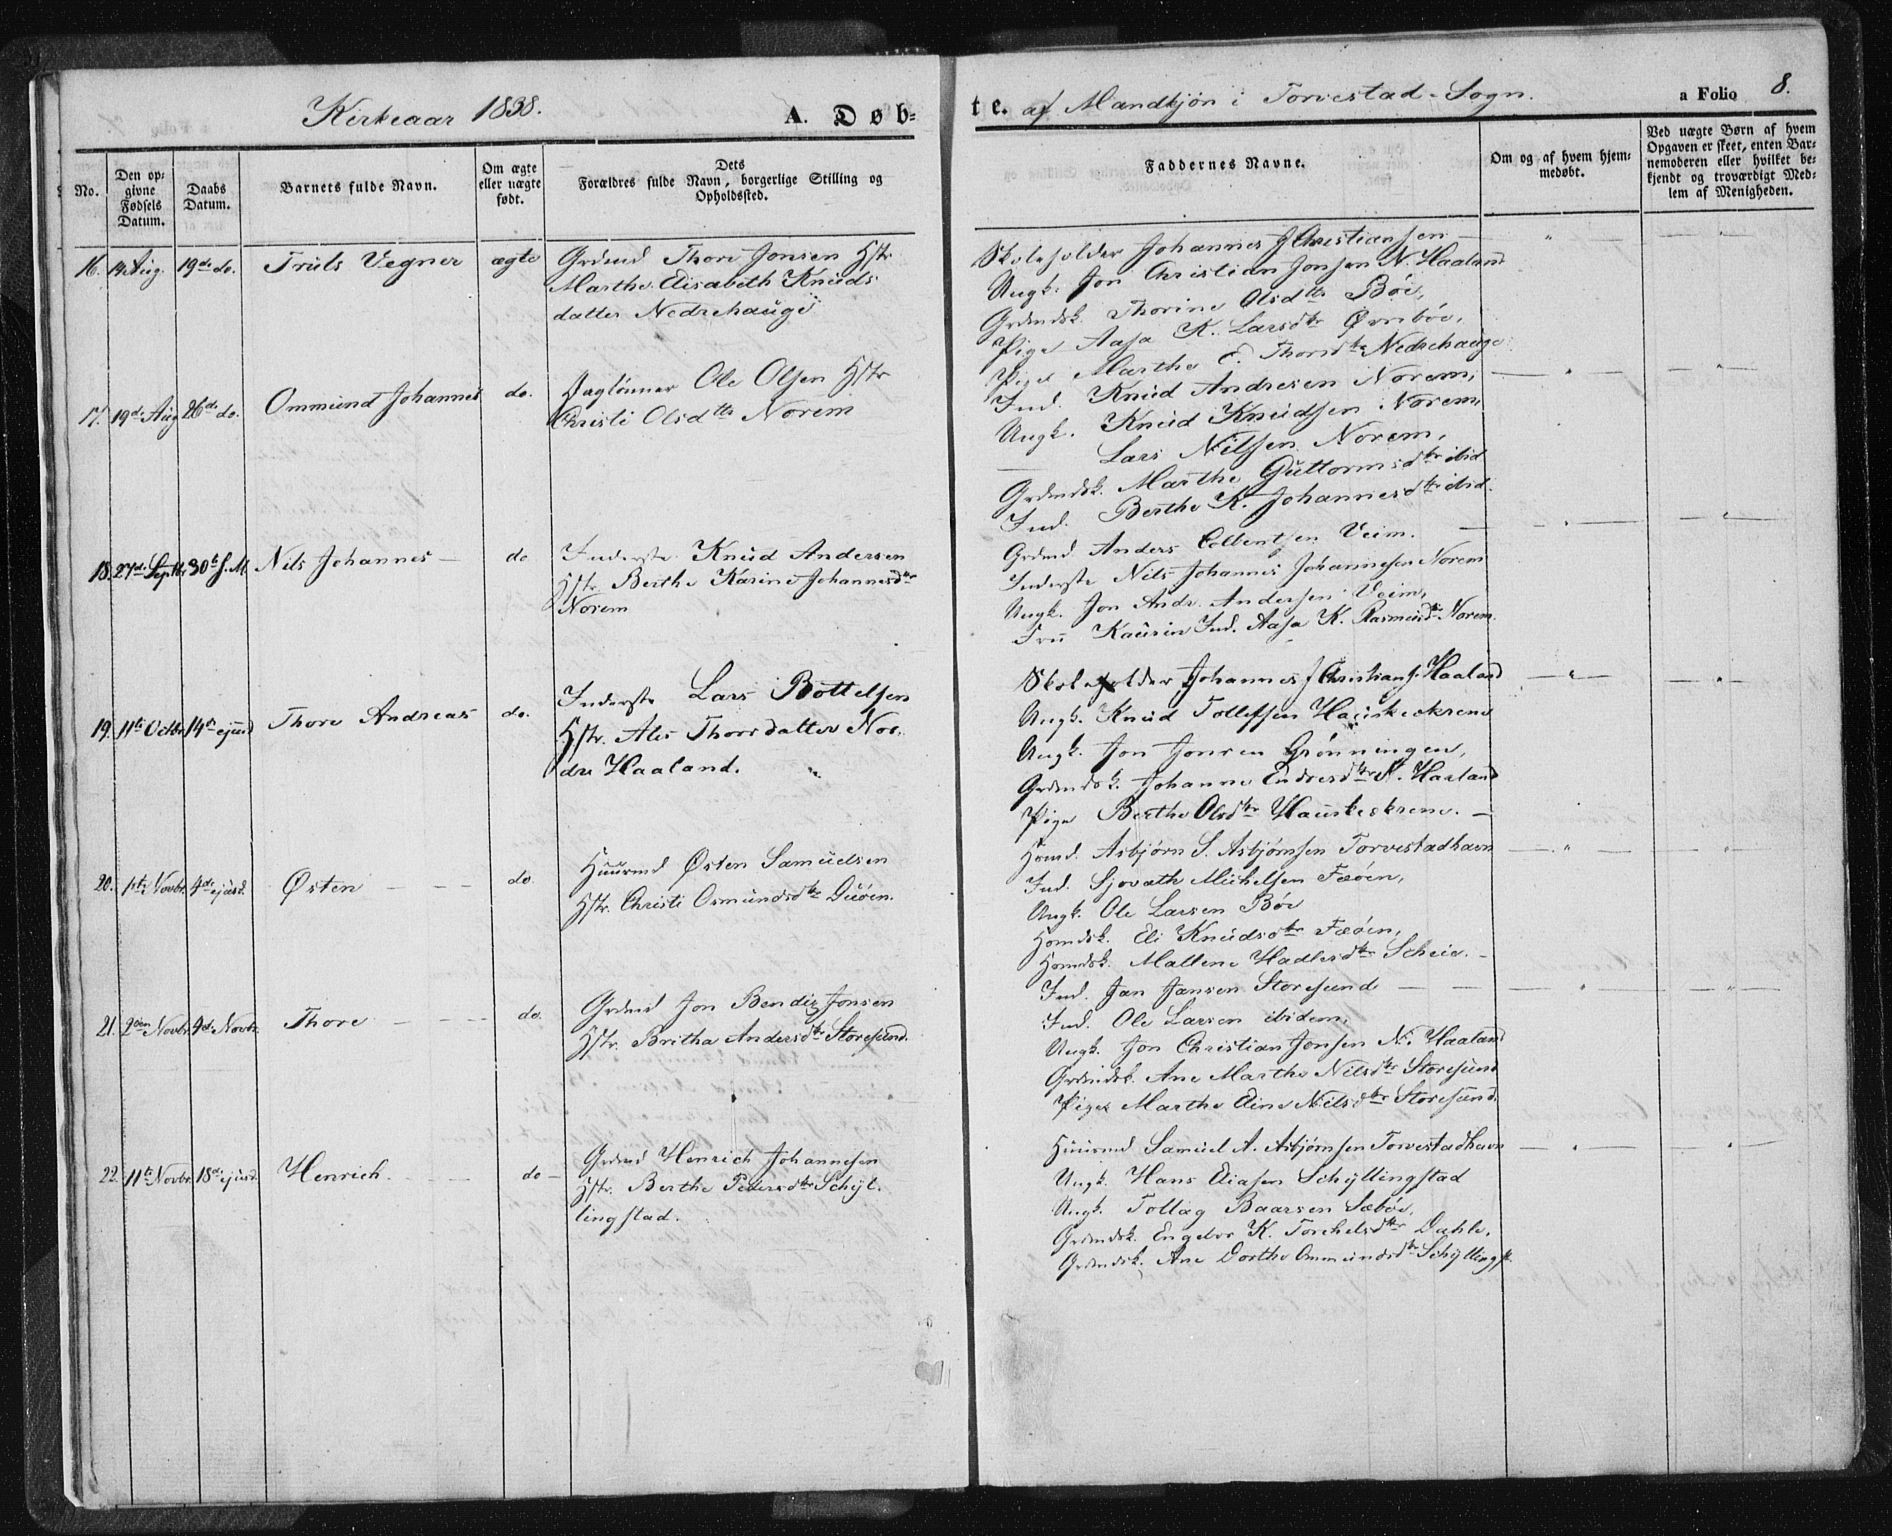 Kirkeaar 1838.
A. Døb-
te. af Mandkjøn i Torvestad-Sogn.
a Folio 8.
No.
Den op-
givne
Fødsels
Datum.
Daabs
Datum.
Barnets fulde Navn.
Om ægte
eller uægte
født.
Dets
Forældres fulde Navn, borgerlige Stilling og
Opholdssted.
Faddernes Navne.
Om og af hvem hjem-
medøbt.
Ved uægte Børn af hvem
Opgaven er skeet, enten Bar-
nemoderen eller hvilket be-
kjendt og troværdigt Med-
lem af Menigheden.
16. Aug. 19de do. Truls Vegner ægte
Grdmd Thore Jonsen Hstr
Marthe Elisabeth Knuds
datter Nedrehauge
Skoleholder Johannes J Christiansen
Ungk. Jon Christian Jonsen N. Haaland
Grdmdsk. Thorine Olsdttr Bøe,
Pige Aasa K. Larsdtr Øvrebøe,
Pige Marthe E. Thorsdtr Nedrehauge
17. 19de Aug 26de do. Ommund Johannes do.
Daglønner Ole Olsen Hstr
Christi Olsdttr Norem
Ind. Knud Andresen Norem,
Ungk. Knud Knudsen Norem,
Lars Nilsen Norem,
Grdmdsk. Marthe Guttormsdtr ibid
Ind. Berthe K. Johannesdtr ibid.
18. 27de Septbr 30te s. M. Nils Johannes do
Inderste Knud Andersen
Hstr. Berthe Karine Johannesdtr
Norem
Grdmd Anders Veim.
Inderste Nils Johannes Johannesen Norem
Ungk. Jon Andr. Andersen Veim,
Fru Kaurin Ind. Aasa K. Rasmusdtr Norem.
19. 11te Octbr 14de ejusd Thore Andreas do.
Inderste Lars Bottelsen
Hstr. Ales Thorsdatter Nor-
dre Haaland.
Skoleholder Johannes J Christians. Haaland
Ungk. Knud Tollefsen Hauskeskrene
Ungk. Jon Jonsen Grønningen,
Grdmdsk. Johanne Endresdtr N. Haaland
Pige Berthe Olsdtr Hauskeskrene.
20. 1ste Novbr. 4de ejusd. Østen do.
Huusmd Østen Samuelsen
Hstr. Christi Osmundsdtr Duøen.
Hsmd. Asbjørn S. Asbjørnsen Torvestadhavn
Ind. Sjovath Michelsen Fæøen,
Ungk. Ole Larsen Bøe
Hsmdsk. Eli Knudsdtr Fæøen,
Hsmdsk. Mallene Hadlesdtr Scheie.
21. 2den Novbr. 4de Novbr. Thore do.
Grdmd Jon Bendix Jonsen
Hstr. Britha Andersdtr Storesund.
Ind. Jan Jansen Storesund
Ind. Ole Larsen ibidem,
Ungk. Jon Christian Jonsen N. Haaland
Grdmdsk. Ane Marthe Nilsdtr Storesund
Pige Marthe Eline Nilsdtr Storesund.
22. 11te Novbr. 18de ejusd. Henrich. do
Grdmd Henrich Johannesen
Hstr. Berthe Pedersdtr Schyl-
lingstad.
Huusmd Samuel A. Asbjørnsen Torvestadhavn
Ungk. Hans Eliasen Schyllingstad
Ungk. Tollag Baarsen Sæbøe,
Grdmdsk. Engelor K. Torchelsdtr Dahle,
Grdmdsk. Ane Dorthe Ommundsdtr Schyllingst.